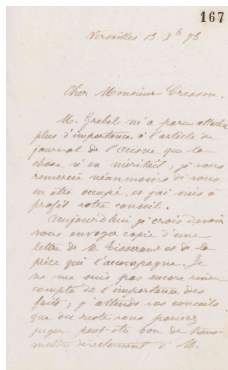 167
Versailles 13 8b 93
Cher Monsieur
M. n'a paru attacher
plus d'importance à l'article du
journal de l'Oise que la
chose n'en méritait, je vous
remercie néanmoins de vous
en être occupé, et j'ai mis à
profit votre conseil.
Aujourd'hui je crois devoir
vous envoyer copie d'une
lettre de M. Tisserand et de la
pièce qui l'accompagne. Je
ne me suis pas encore rendu
compte de l'importance des
faits, j'attends vos conseils
que du reste vous pouvez
juger peut-être bon de trans-
mettre directement à M.